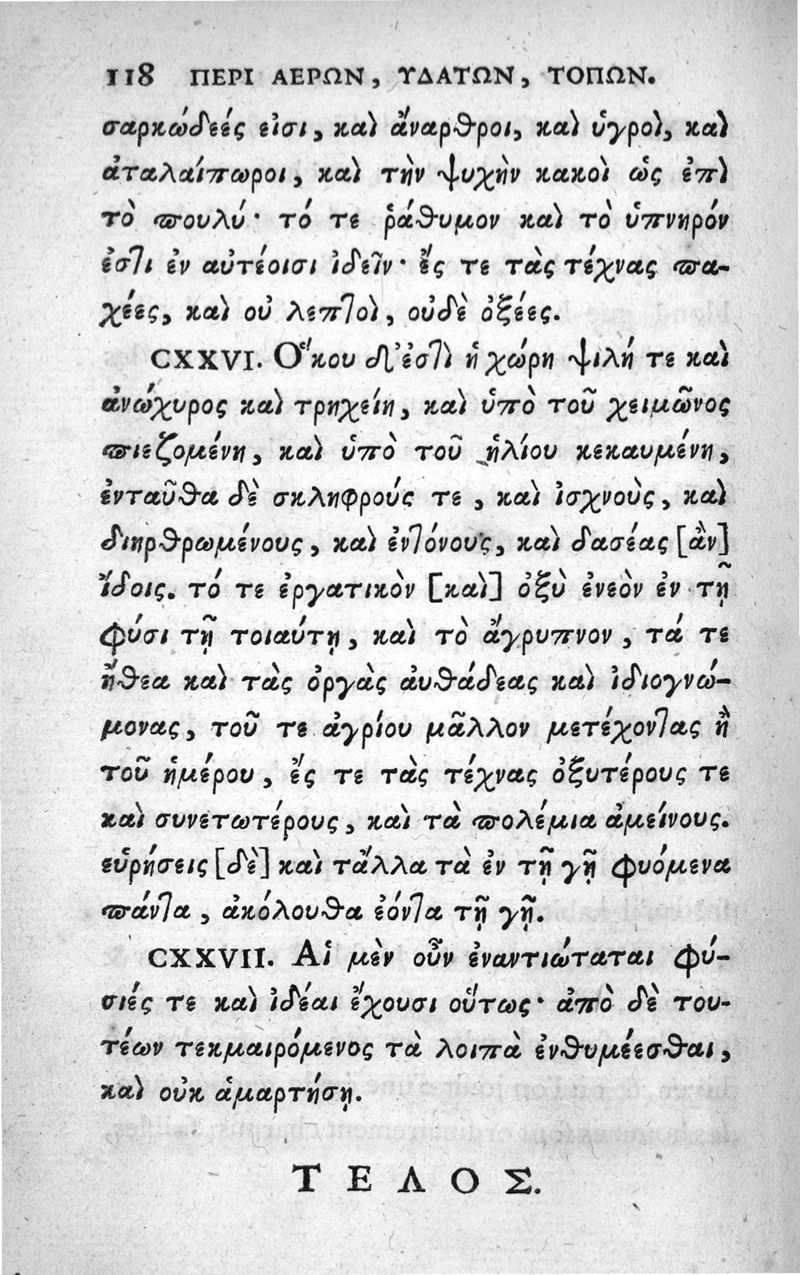 118 ΠΕΡΙ ΑΕΡΩΝ, ΥΔΑΤΩΝ, ΤΟΠΩΝ.
σαρκώδεές εἰσι, καὶ ἄναρθροι, καὶ ὑγροὶ, καὶ
ἀταλαίπωροι, καὶ τὴν ψυχὴν κακοὶ ὡς ἐπὶ
τὸ πουλύ· τό τε ῥάθυμον καὶ τὸ ὑπνηρόν
ἐστι ἐν αὐτέοισι ἰδεῖν· ἔς τε τὰς τέχνας πα-
χέες, καὶ οὐ λεπτοὶ, οὐδὲ ὀξέες.
CXXVI. Ὅκου δ᾽ ἐστὶ ἡ χώρη ψιλή τε καὶ
ἀνώχυρος καὶ τρηχείη, καὶ ὑπὸ τοῦ χειμῶνος
πιεζομένη, καὶ ὑπὸ τοῦ ἡλίου κεκαυμένη,
ἐνταῦθα δὲ σκληφρούς τε, καὶ ἰσχνοὺς, καὶ
διηρθρωμένους, καὶ ἐντόνους, καὶ δασέας [ἂν]
ἴδοις. τό τε ἐργατικὸν [καὶ] ὀξὺ ἐνεὸν ἐν τῇ
φύσι τῇ τοιαύτῃ, καὶ τὸ ἄγρυπνον, τά τε
ἤθεα καὶ τὰς ὀργὰς αὐθάδεας καὶ ἰδιογνώ-
μονας, τοῦ τε ἀγρίου μᾶλλον μετέχοντας ἢ
τοῦ ἡμέρου, ἔς τε τὰς τέχνας ὀξυτέρους τε
καὶ συνετωτέρους, καὶ τὰ πολέμια ἀμείνους.
εὑρήσεις [δὲ] καὶ τἄλλα τὰ ἐν τῇ γῇ φυόμενα
πάντα, ἀκόλουθα ἐόντα τῇ γῇ.
CXXVII. Αἱ μὲν οὖν ἐναντιώταται φύ-
σιές τε καὶ ἰδέαι ἔχουσι οὕτως· ἀπὸ δὲ του-
τέων τεκμαιρόμενος τὰ λοιπὰ ἐνθυμέεσθαι,
καὶ οὐκ ἁμαρτήσῃ.
ΤΕΛΟΣ.